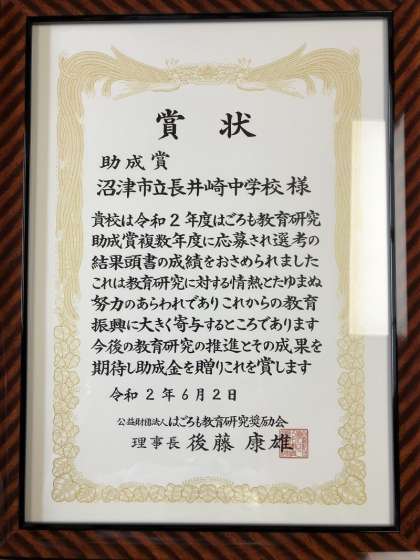 賞状
助成賞
沼津市立長井崎中学校様
貴校は令和2年度はごろも教育研究
助成賞複数年度に応募され選考の
結果頭書の成績をおさめられました
これは教育研究に対する情熱とたゆまぬ
努力のあらわれでありこれからの教育
振興に大きく寄与するところであります
今後の教育研究の推進とその成果を
期待し助成金を贈りこれを賞します
令和2年6月2日
公益財団法人はごろも教育研究奨励会
理事長 後藤康雄